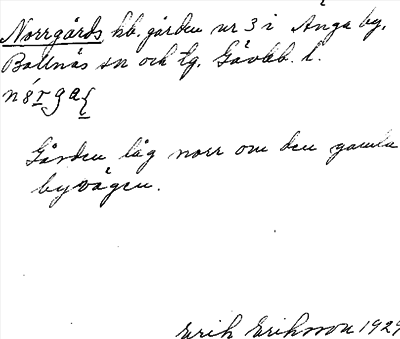 Norrgårds hb. gården nr 3 i Änga by,
Bollnäs sn och tg. Gävleb. l.
Gården låg norr om den gamla
byvägen.
Erik Eriksson 1929